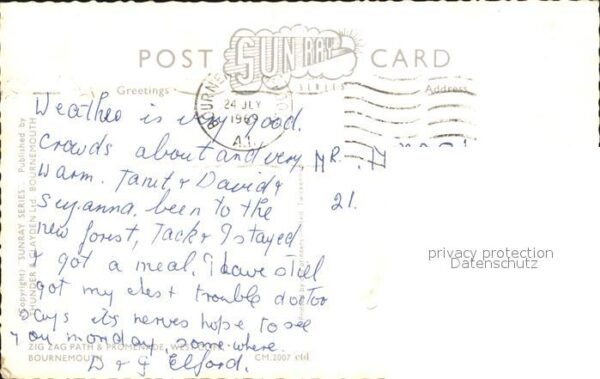 POST CARD
SUNRAY
SERIES
Greetings
Address
BOURNE
24 JLY
1969
A.1.
Weather is very good.
Crowds about and very
warm. Tanit & David &
Suzanna. been to the
new forest, Jack & I stayed
& got a meal. I have still
got my chest trouble doctor
says its nerves hope to see
you monday, some where.
D & J Elford.
MR. H
21.
privacy protection
Datenschutz
Copyright: SUNRAY SERIES Published by
THUNDER & CLAYDEN Ltd. BOURNEMOUTH
ZIG ZAG PATH & PROMENADE, WEST
BOURNEMOUTH
CM.2007